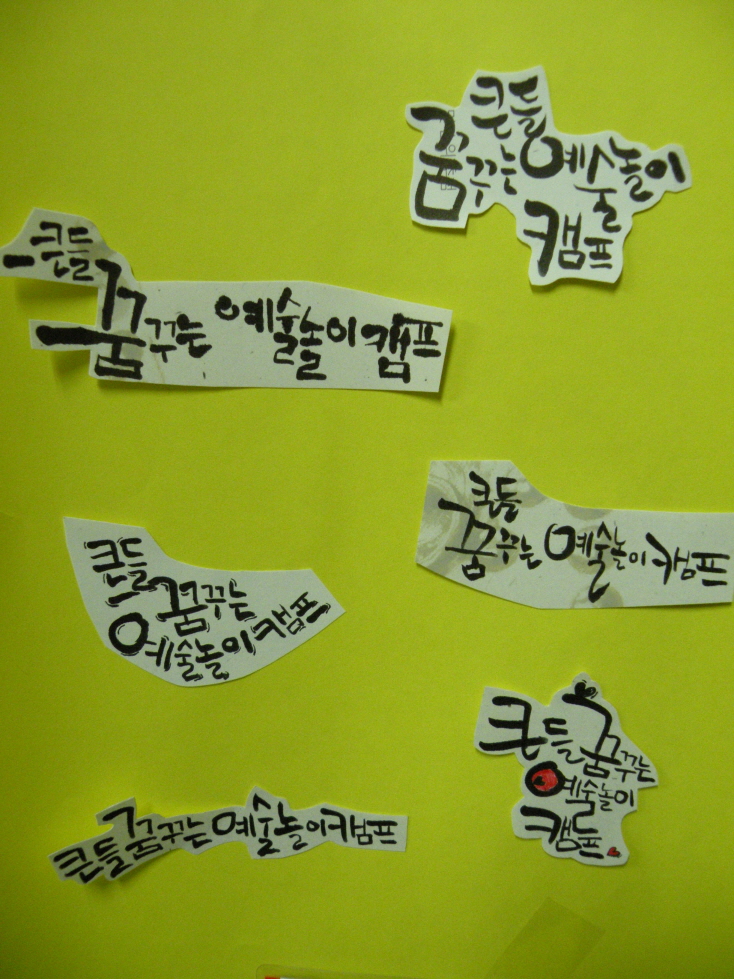 큰들
꿈꾸는 예술놀이
캠프
큰들
꿈꾸는 예술놀이 캠프
큰들
꿈꾸는 예술놀이 캠프
큰들
꿈꾸는
예술놀이 캠프
큰들 꿈꾸는
예술놀이
캠프
큰들 꿈꾸는 예술놀이 캠프